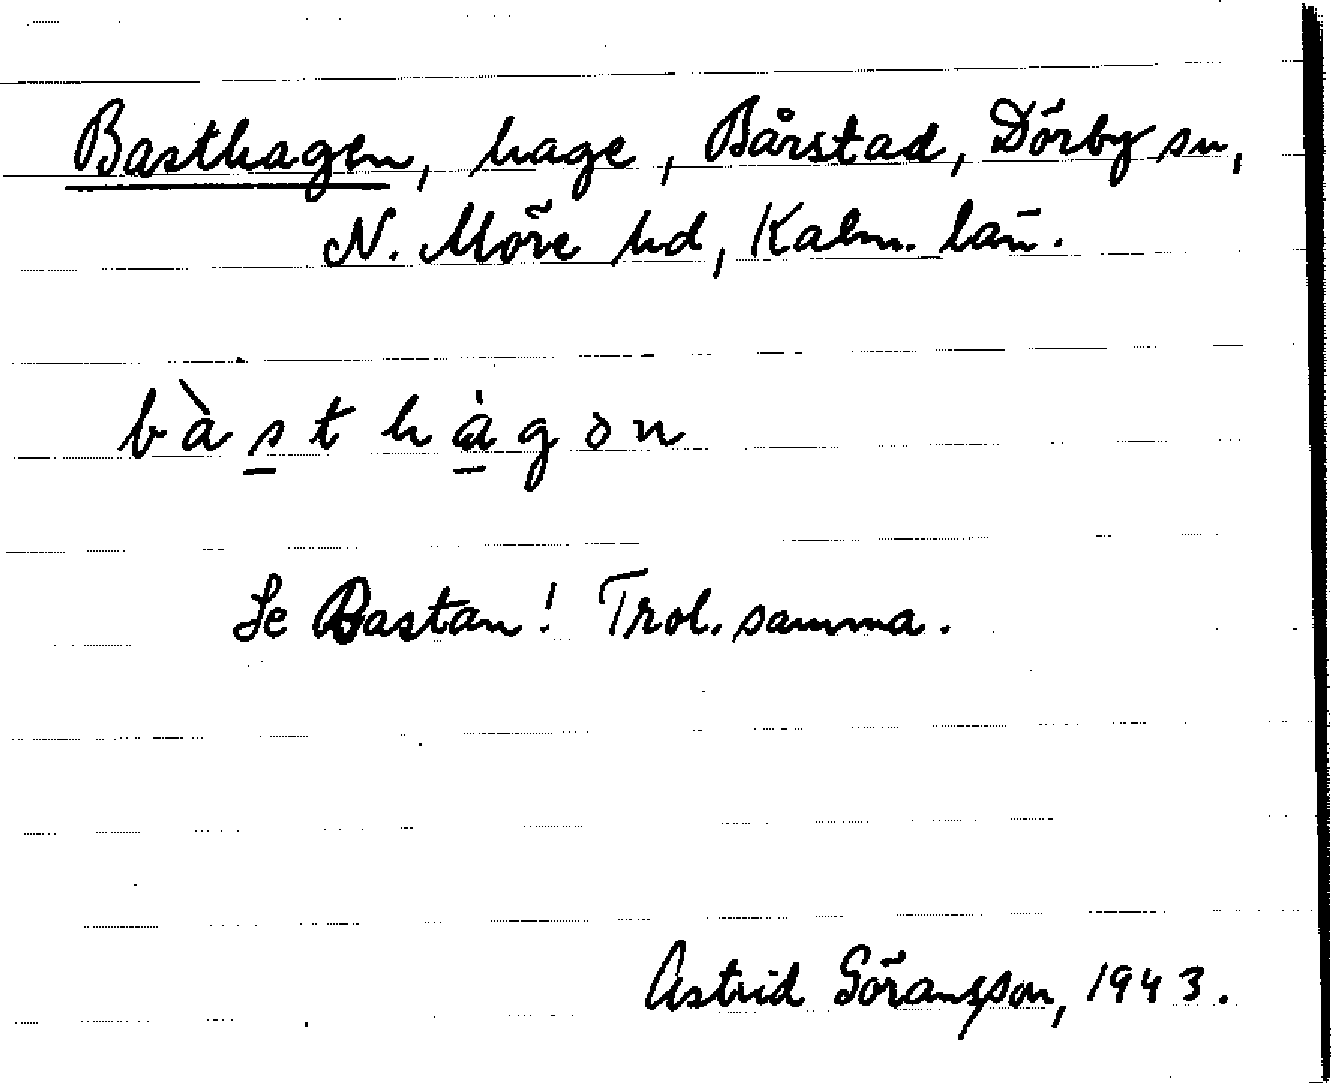 Basthagen, hage, Bårstad, Dörby sn,
N. Möre hd, Kalm. län.
bàsthàgən
Se Bastan! Trol. samma.
Astrid Göransson, 1943.